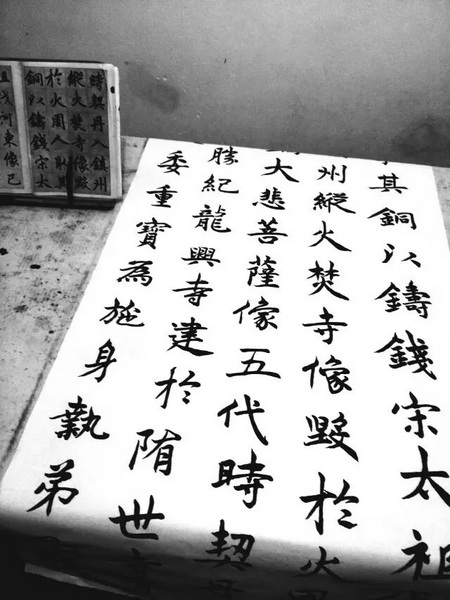 時契丹入鎮州
縱火焚寺像毀
於火周人取
銅以鑄錢宋太
河東像已
委重寶為施身執弟
勝紀龍興寺建於隋世
大悲菩薩像五代時契
州縱火焚寺像毀於火
其銅以鑄錢宋太祖